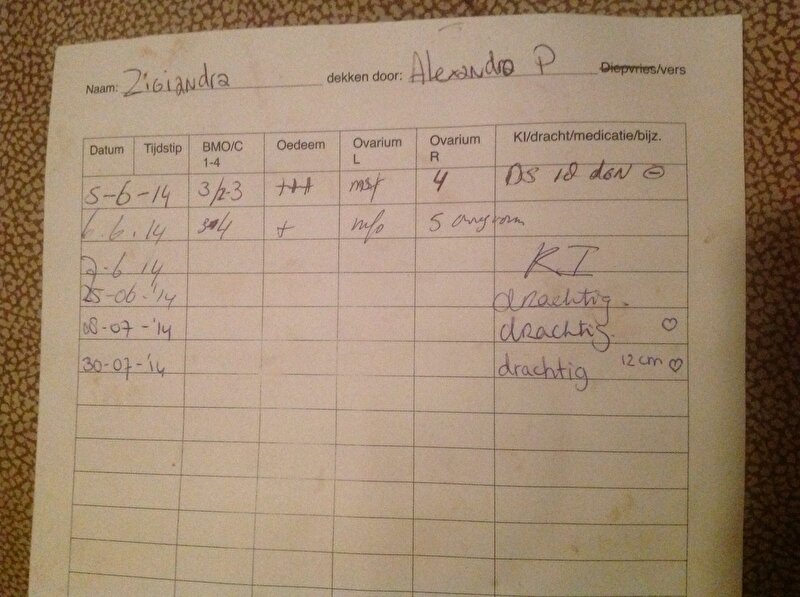 Naam: Zigiandra dekken door: Alexandro P Diepvries/vers
Datum Tijdstip BMO/C 1-4 Oedeem Ovarium L Ovarium R KI/dracht/medicatie/bijz.
5-6-14 3/2-3 +++ 4 DS 18 den ⊖
6.6.14 4 + 5
7-6 14 KI
25-06-'14 drachtig.
08-07-'14 drachtig. ♡
30-07-'14 drachtig 12cm ♡